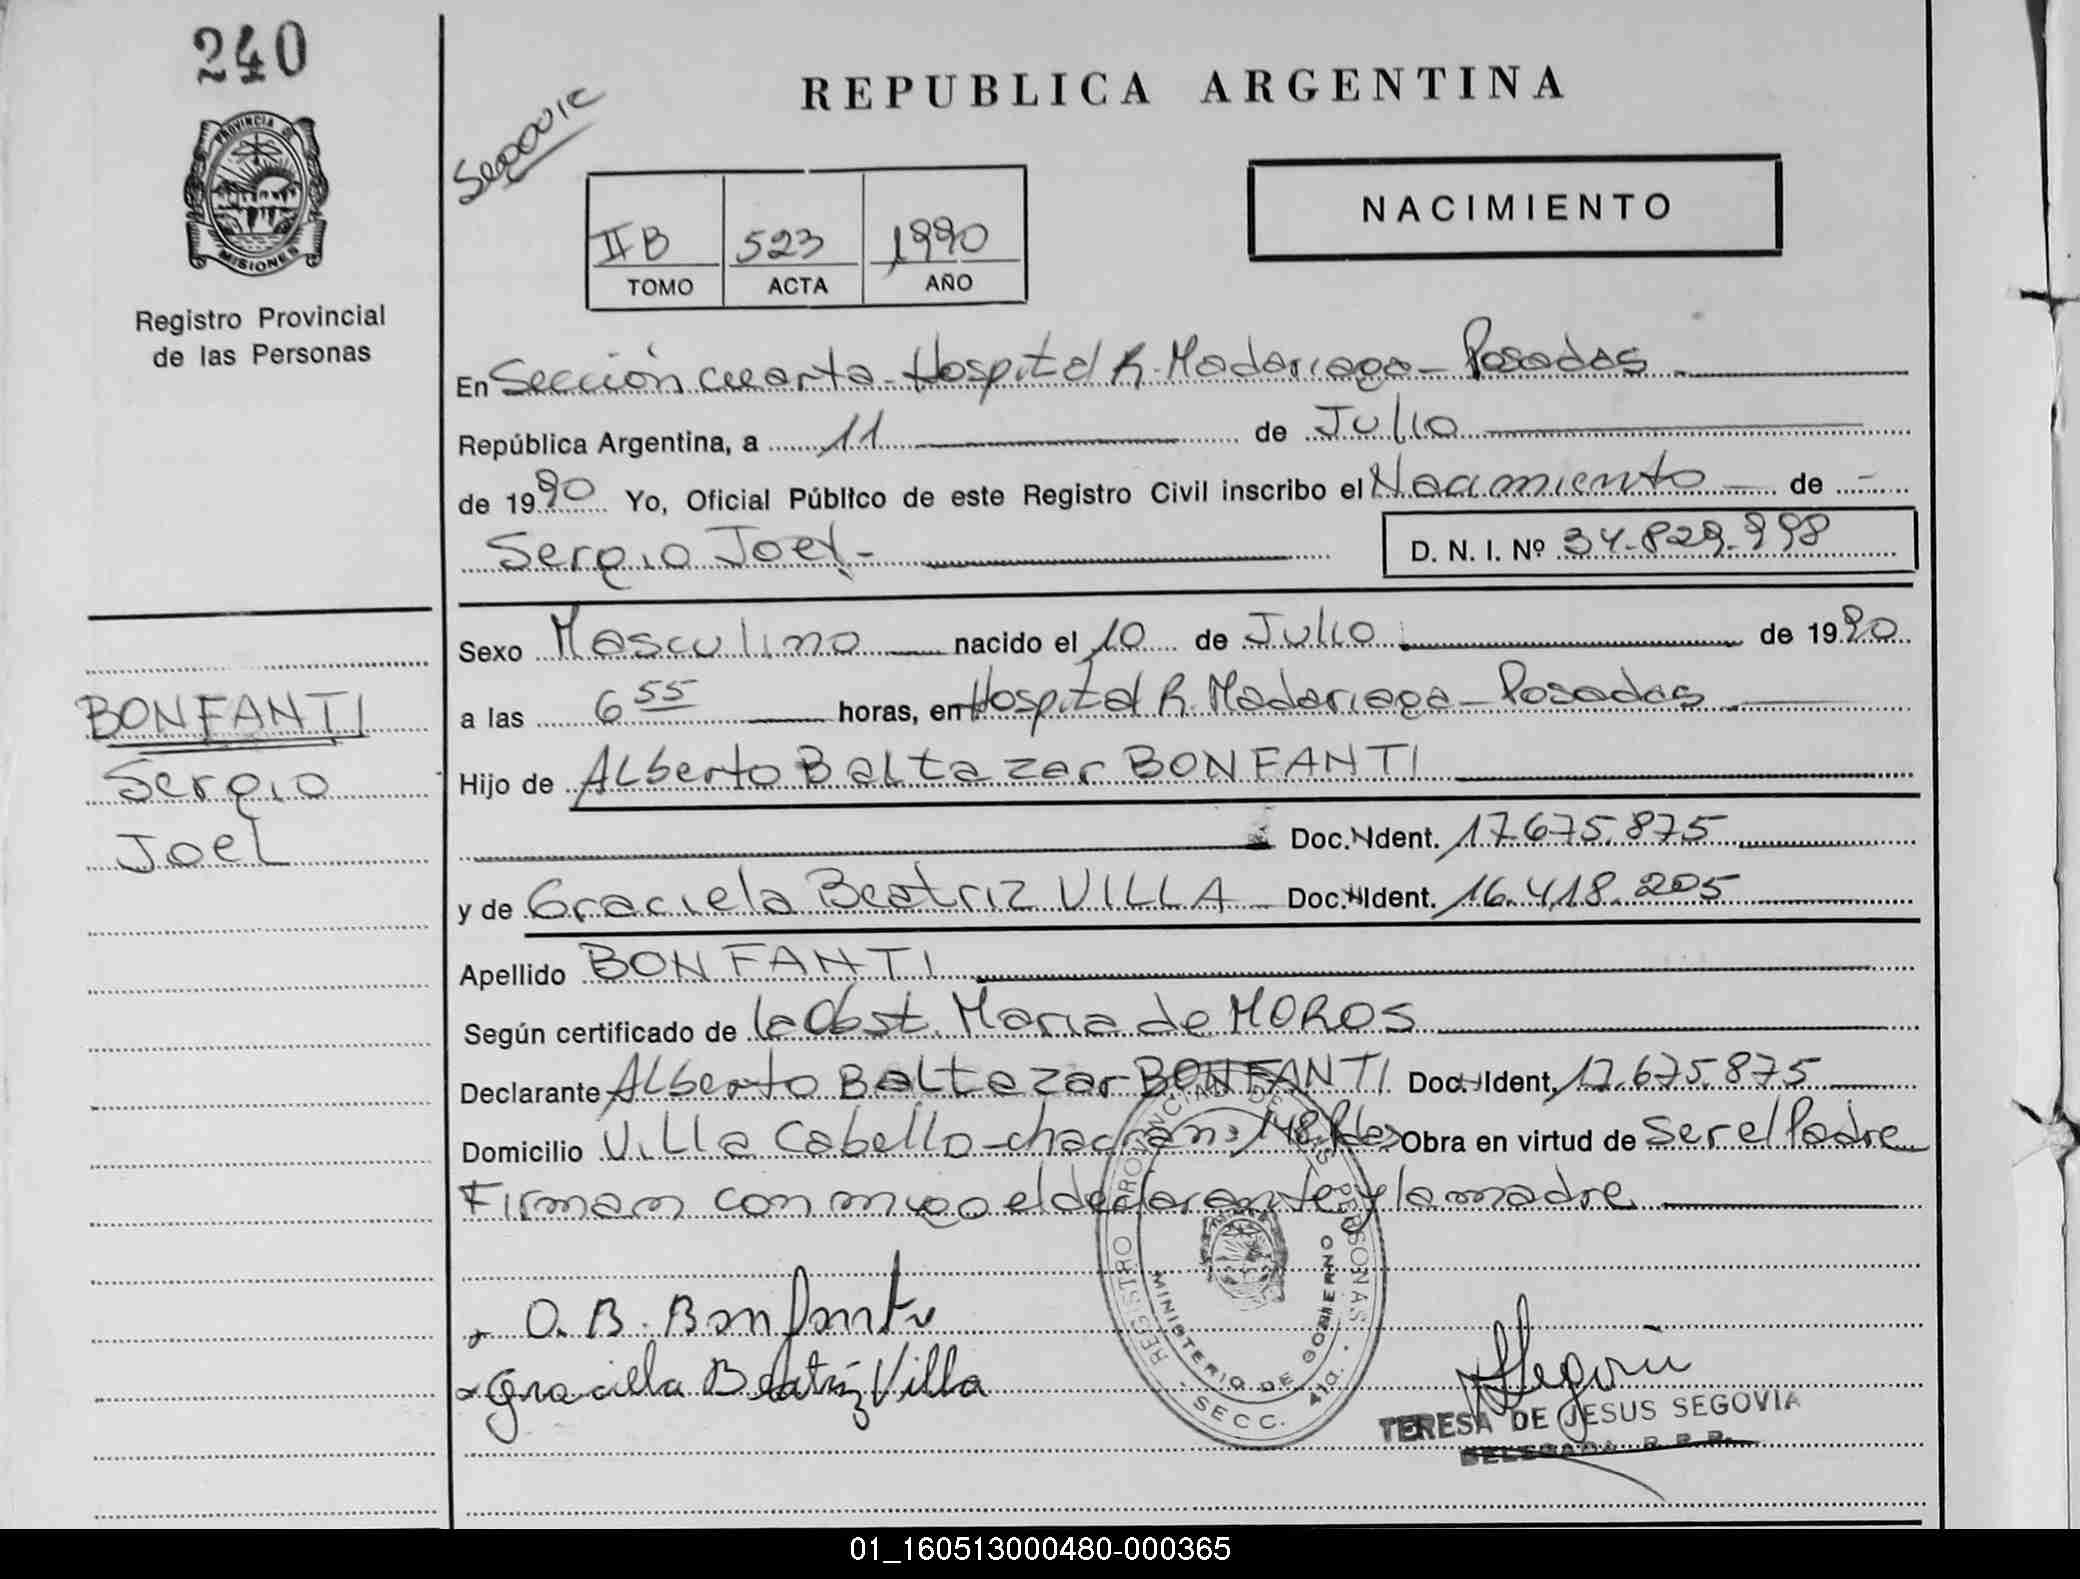 240
PROVINCIA DE
MISIONES
Registro Provincial
de las Personas
BONFANTI
Sergio
Joel
REPUBLICA ARGENTINA
Segovia
II B 523 1990
TOMO ACTA AÑO
NACIMIENTO
En Sección cuarta - Hospital R. Madariaga - Posadas
República Argentina, a 11 de Julio
de 1990 Yo, Oficial Público de este Registro Civil inscribo el Nacimiento - de -
Sergio Joel - D. N. I. Nº 34.829.998
Sexo Masculino nacido el 10 de Julio de 1990
a las 6 55 horas, en Hospital R. Madariaga - Posadas
Hijo de Alberto Baltazar BONFANTI
Doc. Ident. 17.675.875
y de Graciela Beatriz VILLA Doc. Ident. 16.418.205
Apellido BONFANTI
Según certificado de la Obst. Maria de MOROS
Declarante Alberto Baltazar BONFANTI Doc. Ident. 17.675.875
Domicilio Villa Cabello - chacra nº 148 Pdas Obra en virtud de Ser el Padre
Firman con migo el declarante y la madre
A. B. Bonfanti
Graciela Beatriz Villa
REGISTRO PROVINCIAL DE LAS PERSONAS
MINISTERIO DE GOBIERNO
SECC. 41a.
TERESA DE JESUS SEGOVIA
DELEGADA R. P. P.
01_160513000480-000365